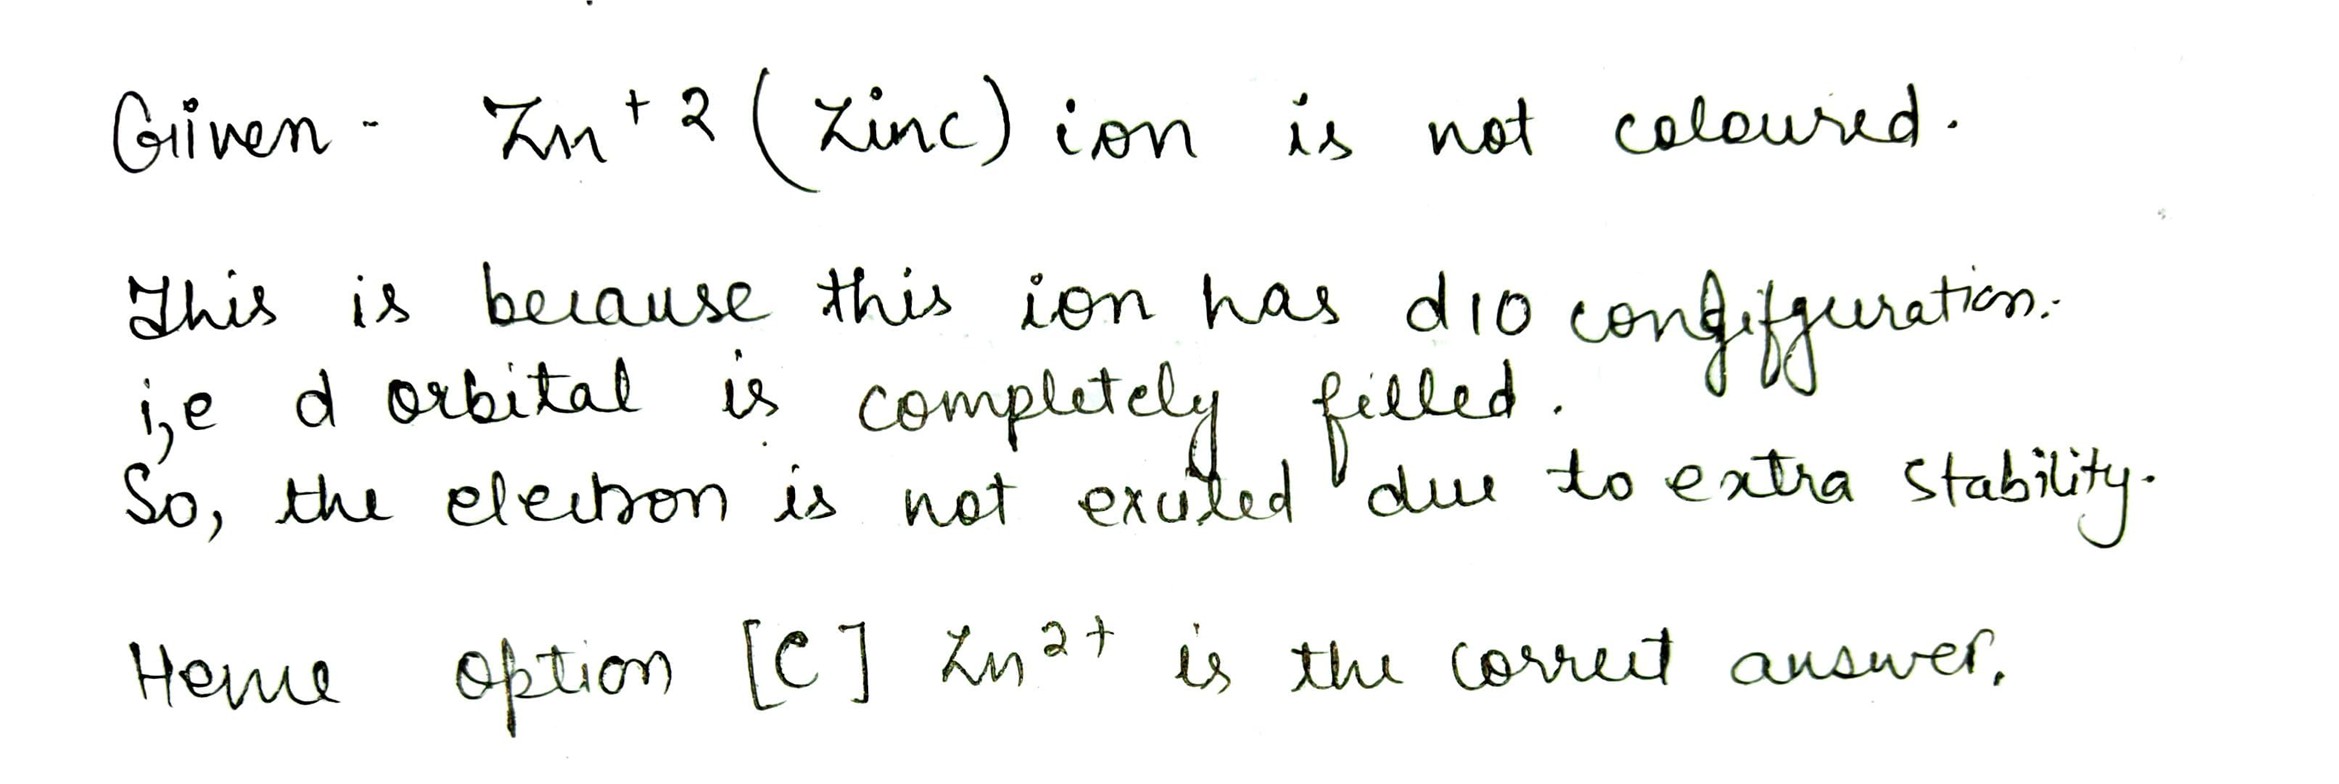 Given - Zn+2 (Zinc) ion is not coloured.
This is because this ion has d10 configuration.
i,e d orbital is completely filled.
So, the electron is not excited due to extra stability.
Hence option [C] Zn2+ is the correct answer.